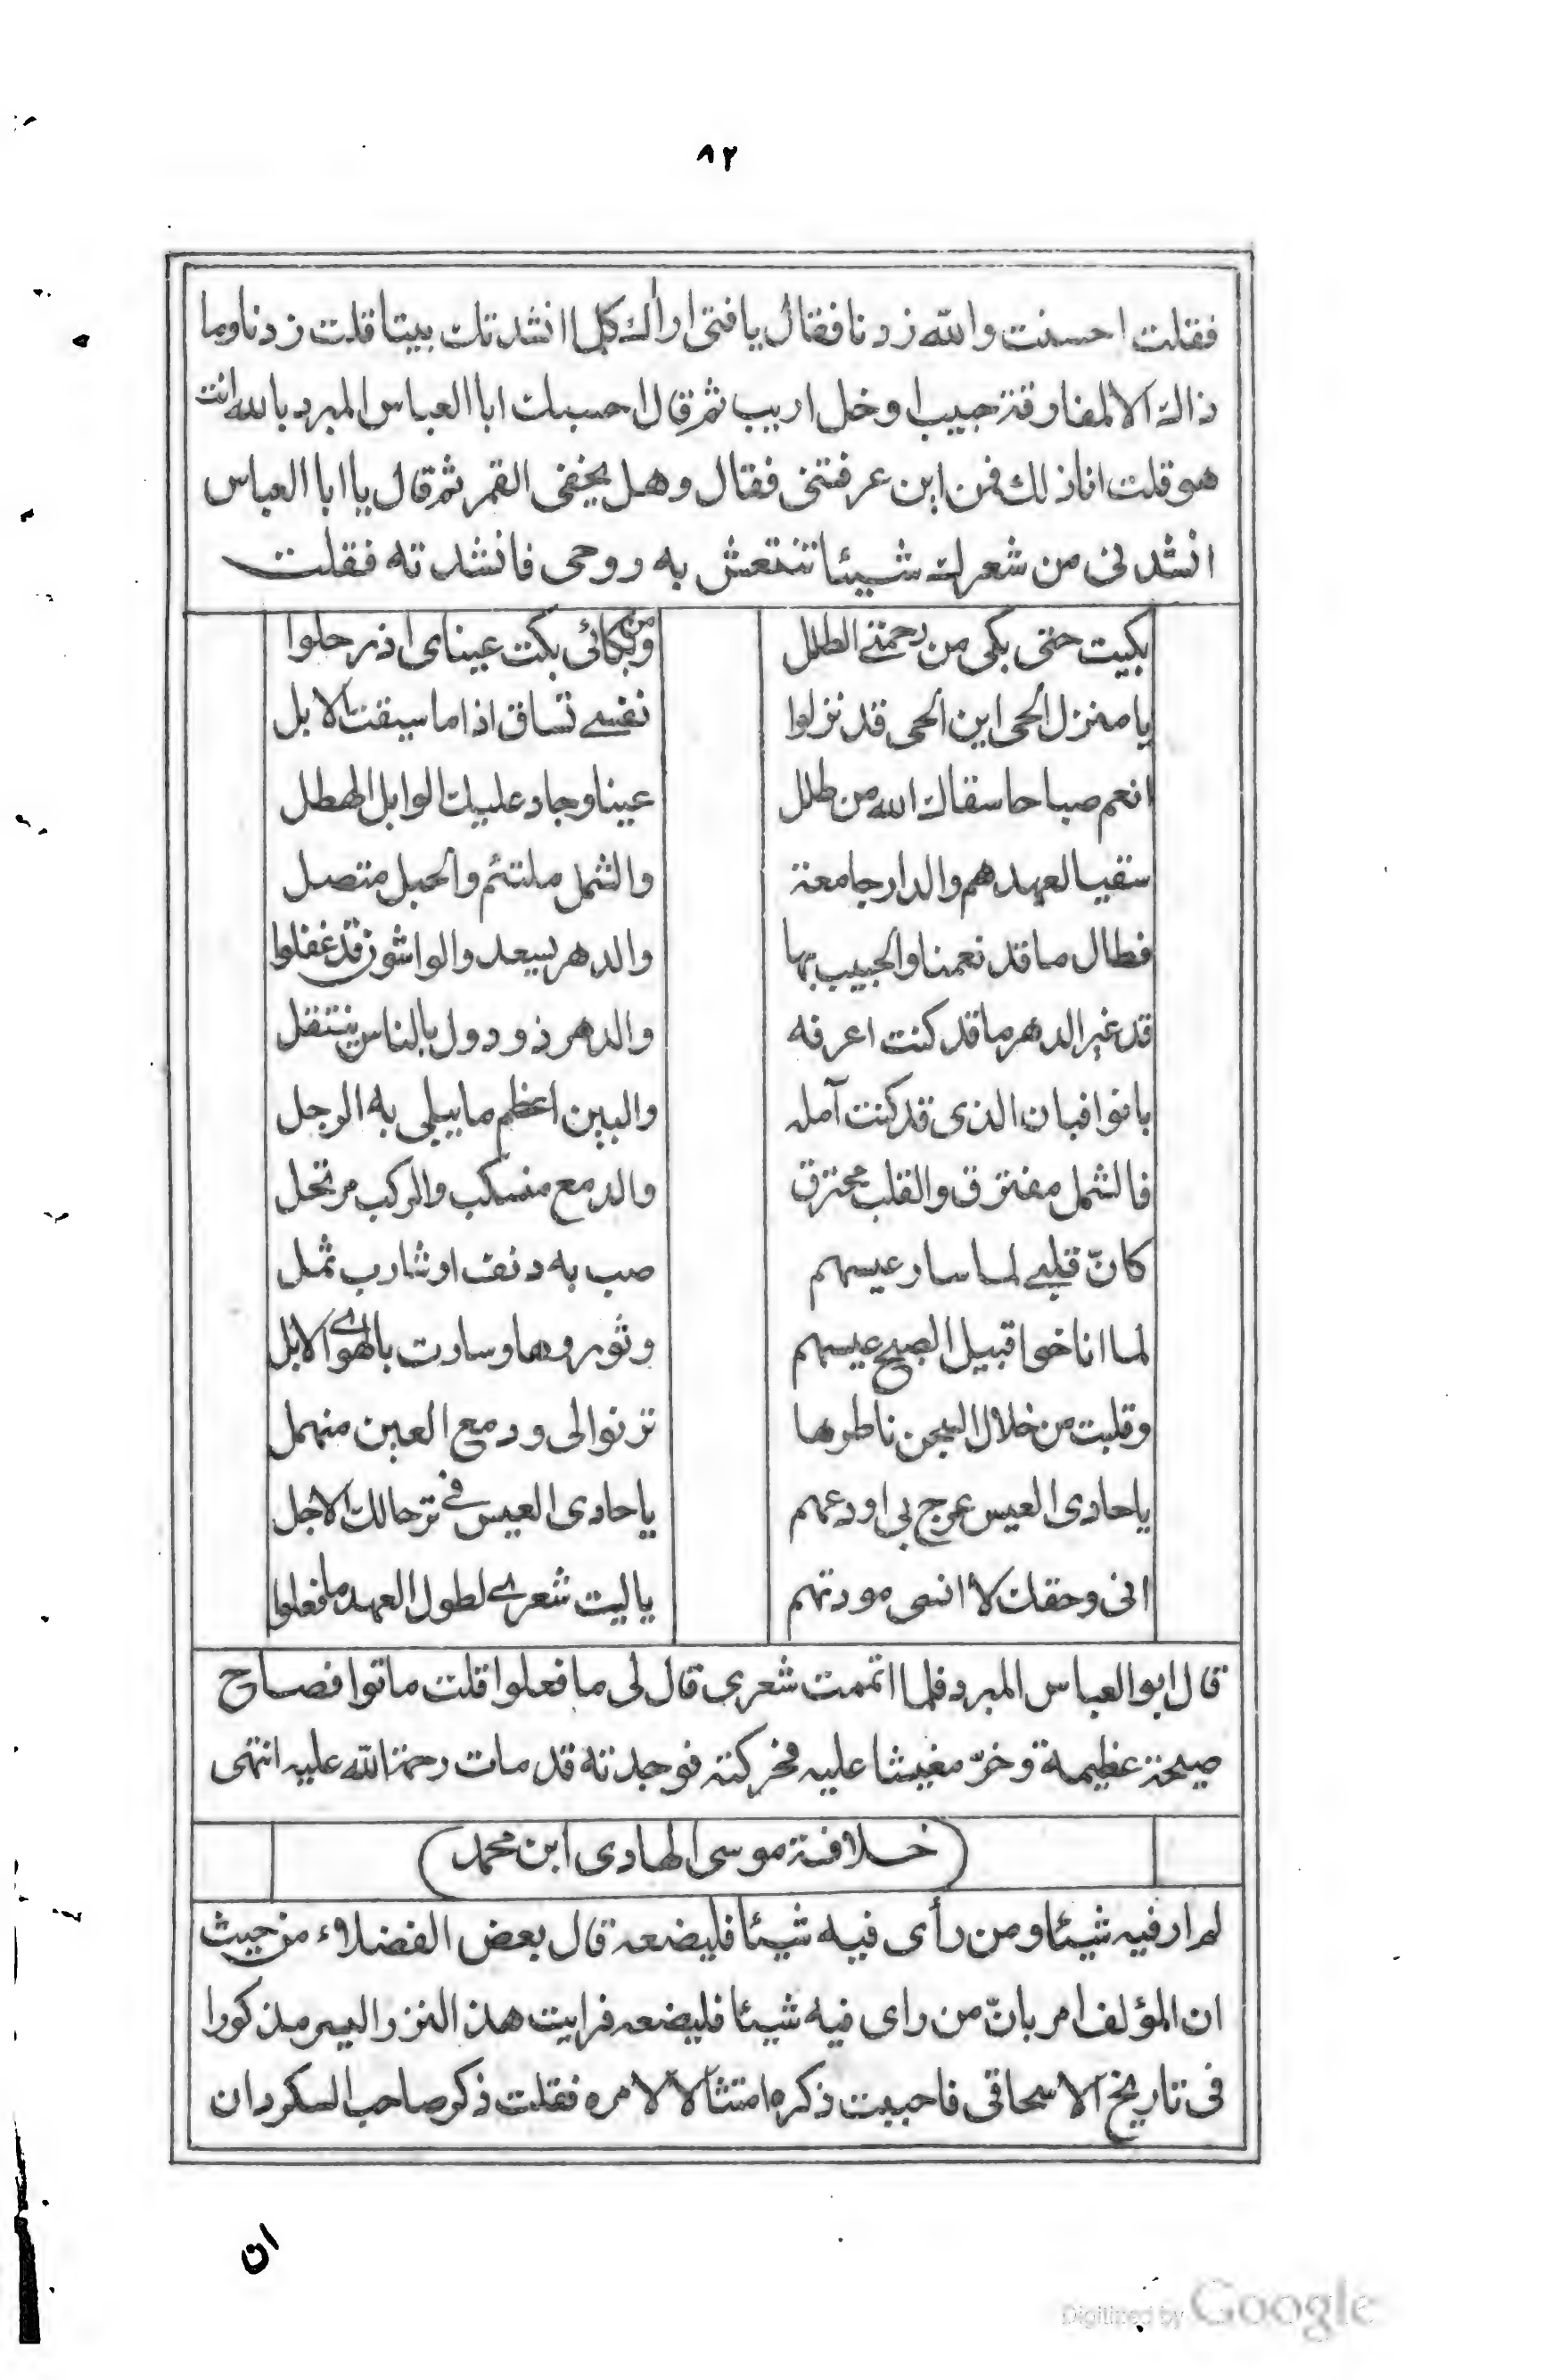 ٨٢
فقلت احسنت والله زدنا فقال يا فتى اراك كلما انشدتك بيتا قلت زدنا وما
ذاك الا لمفارقة حبيب او خل اريب ثم قال احسبك ابا العباس المبرد بالله انت
هو قلت انا ذلك فمن اين عرفتنى فقال وهل يخفى القمر ثم قال يا ابا العباس
انشدنى من شعرك شيئا تنتعش به روحى فانشدته فقلت
بكيت حتى بكى من رحمتى الطلل ومن بكائى بكت عيناى اذ رحلوا
يا منزل الحى اين الحى قد نزلوا نفسى تساق اذا ما سيقت الابل
انعم صباحا سقاك الله من طلل عينا وجاد عليك الوابل الهطل
سقيا لعهدهم والدار جامعة والشمل ملتئم والحبل متصل
فطال ما قد نعمنا والحبيب بها والدهر يسعد والواشون قد غفلوا
قد غير الدهر ما قد كنت اعرفه والدهر ذو دول بالناس ينتقل
بانوا فبان الذى قد كنت آمله والبين اعظم ما يبلى به الرجل
فالشمل مفترق والقلب محترق والدمع منسكب والركب مرتحل
كانّ قلبى لما سار عيسهم صب به دنف او شارب ثمل
لما اناخوا قبيل الصبح عيسهم وثوروها وسارت بالهوى الابل
وقلبت من خلال السجن ناظرها ترنوا لى ودمع العين منهمل
يا حادى العيس عرج بى اودعهم يا حادى العيس فى ترحالك الاجل
انى وحقك لا انسى مودتهم يا ليت شعرى لطول العهد ما فعلوا
قال ابو العباس المبرد فلما اتممت شعرى قال لى ما فعلوا قلت ماتوا فصاح
صيحة عظيمة وخرّ مغيشا عليه فحركته فوجدته قد مات رحمة الله عليه انتهى
(خلافة موسى الهادى ابن محمد)
لم ار فيه شيئا ومن رأى فيه شيئا فليضعه قال بعض الفضلاء من حيث
ان المؤلف امر بانّ من راى فيه شيئا فليضعه فرايت هذ النزر اليسر مذكورا
فى تاريخ الاسحاقى فاحببت ذكره امتثالا لامره فقلت ذكر صاحب السكردان
ان
Digitized by Google